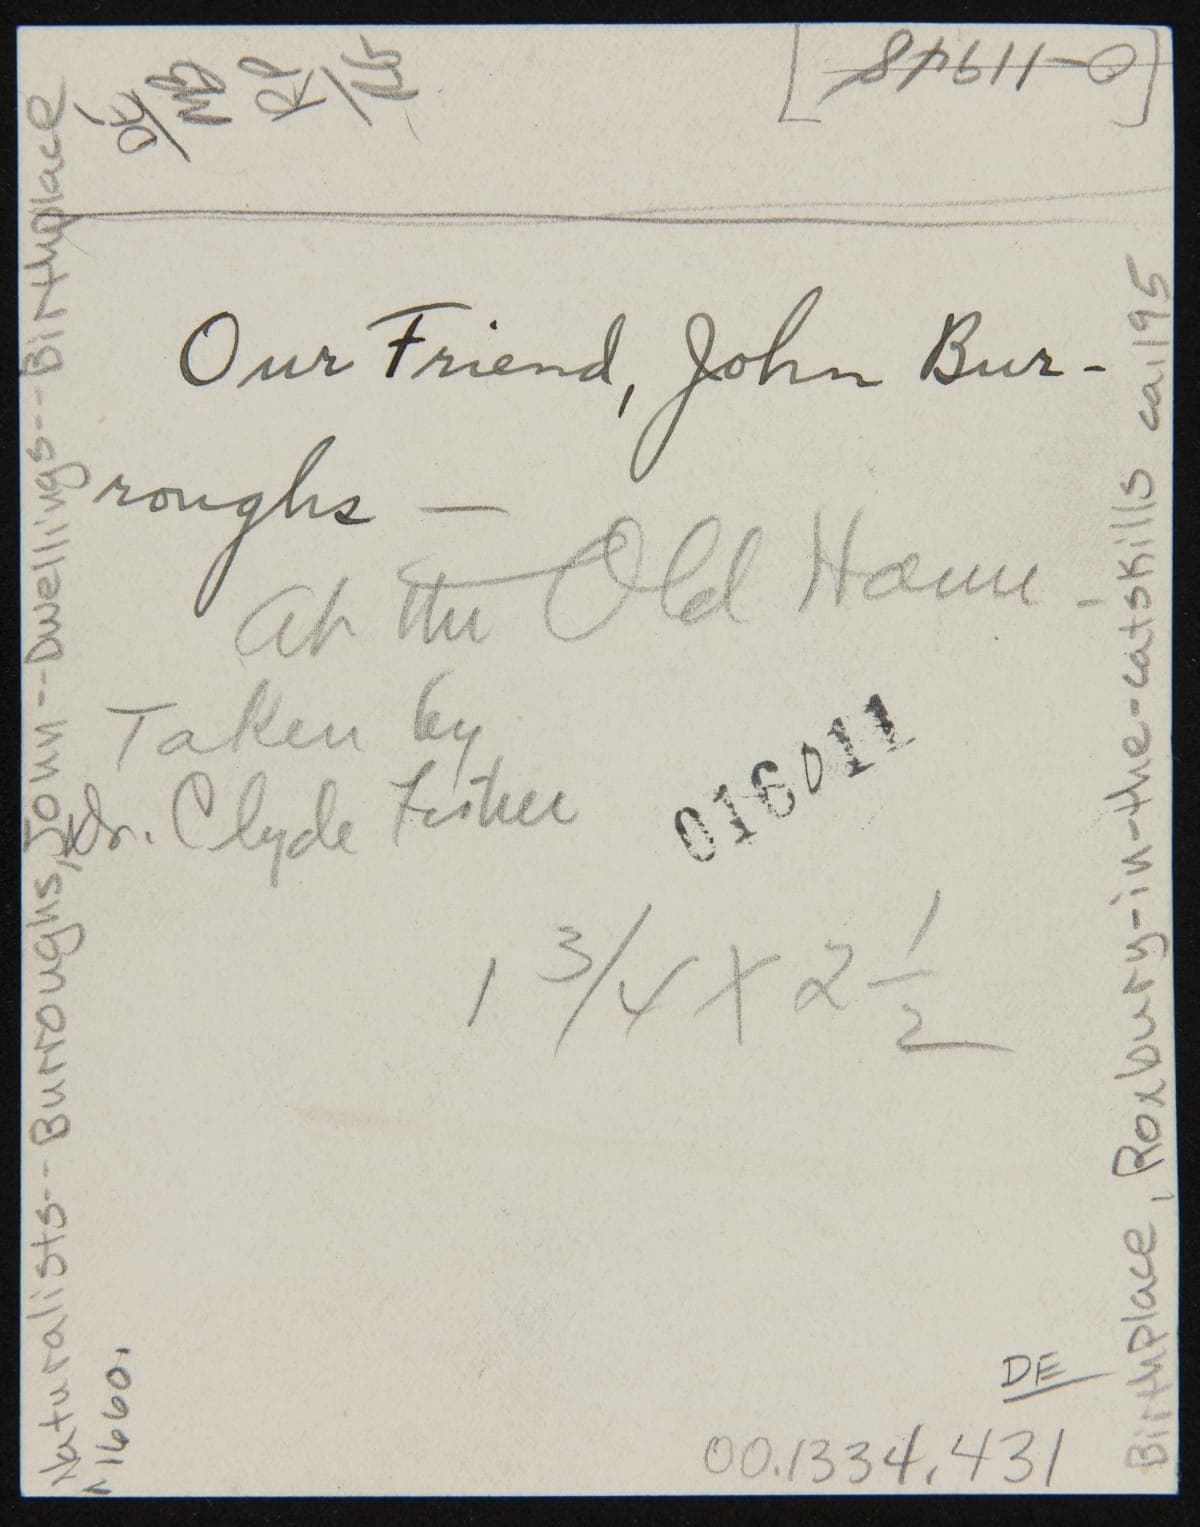 DE/MB RP/
[0-11948]
Our Friend, John Bur-
roughs —
At the Old Home -
Taken by
Dr. Clyde Fisher
016011
1 3/4 X 2 1/2
DE
00.1334.431
Naturalists--Burroughs, John--Dwellings--Birthplace
1660.
Birthplace, Roxbury-in-the-Catskills ca.1195